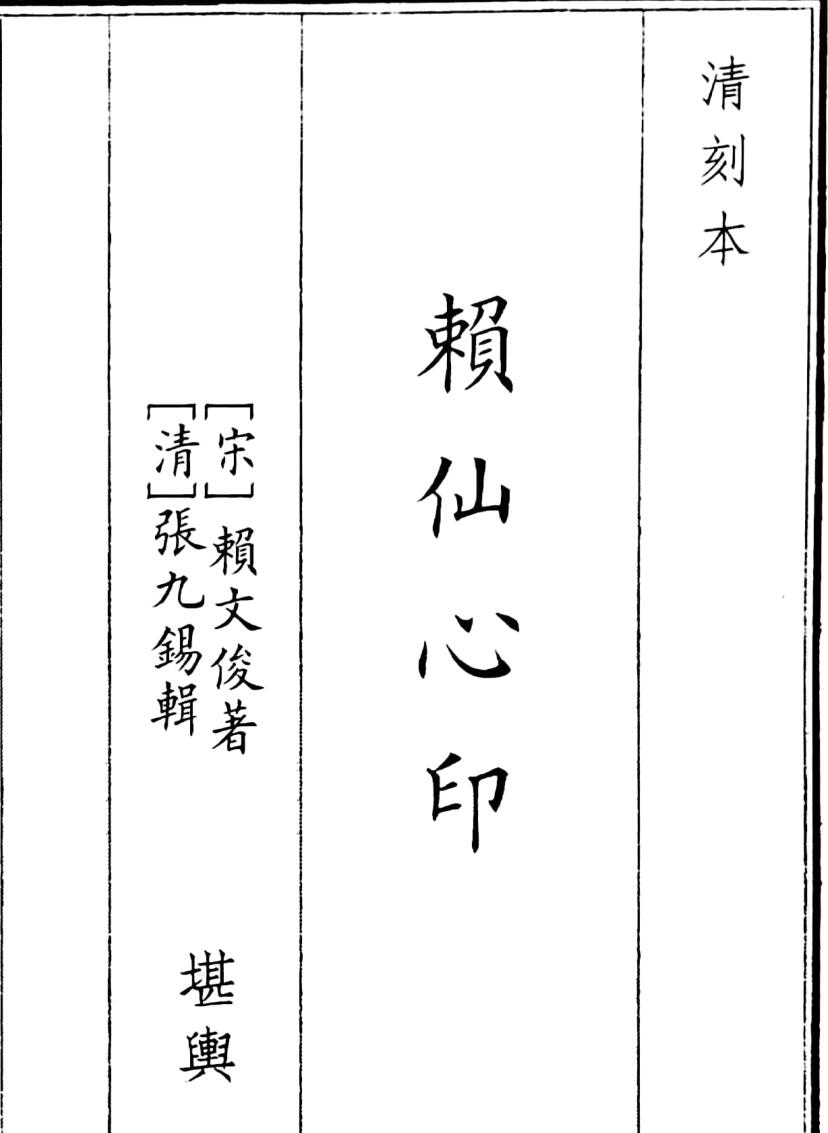 清刻本
賴仙心印
[宋]賴文俊著
[清]張九錫輯
堪輿